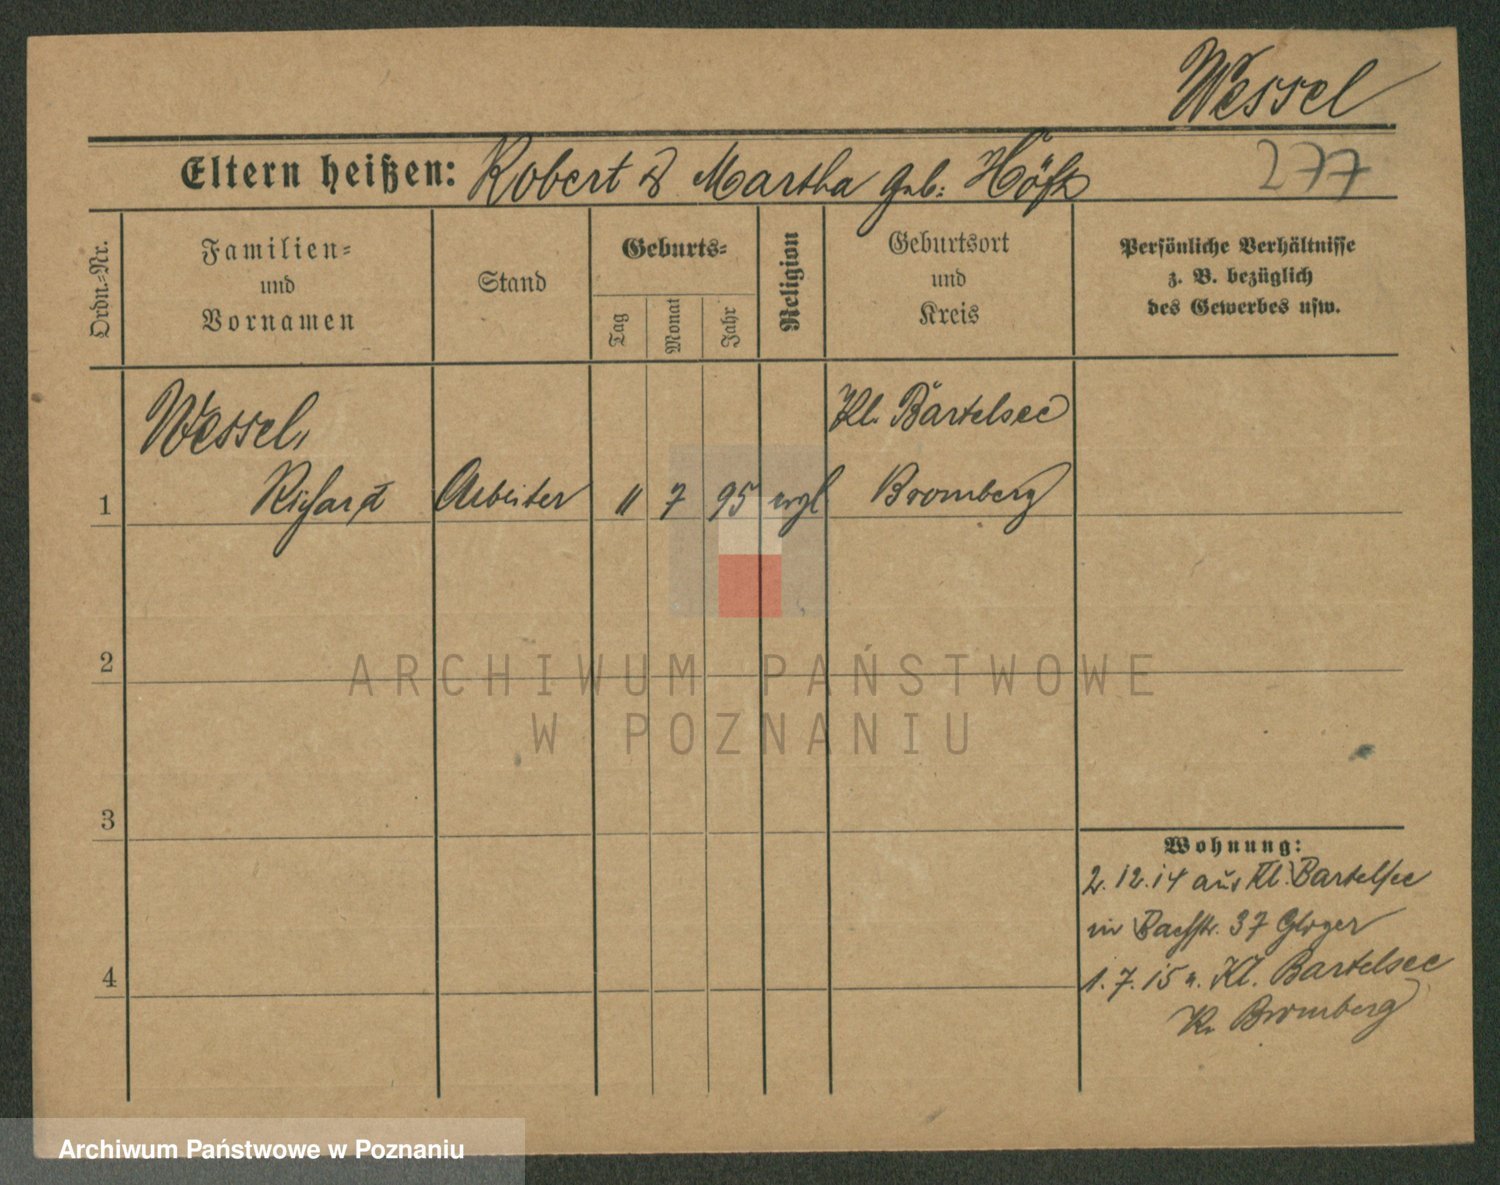 Wessel
Eltern heißen: Robert & Martha geb: Höft
277
Ordn.-Nr.
Familien-
und
Vornamen
Stand
Geburts-
Tag
Monat
Jahr
Religion
Geburtsort
und
Kreis
Persönliche Verhältnisse
z. B. bezüglich
des Gewerbes usw.
Wessel,
Kl. Bartelsee
1 Richard Arbeiter 11 7 95 evgl Bromberg
2
ARCHIWUM PAŃSTWOWE
W POZNANIU
3
Wohnung:
2.12.14 aus Kl. Bartelsee
in Bachstr. 37 Gloger
4
1.7.15 n. Kl. Bartelsee
Kr. Bromberg
Archiwum Państwowe w Poznaniu